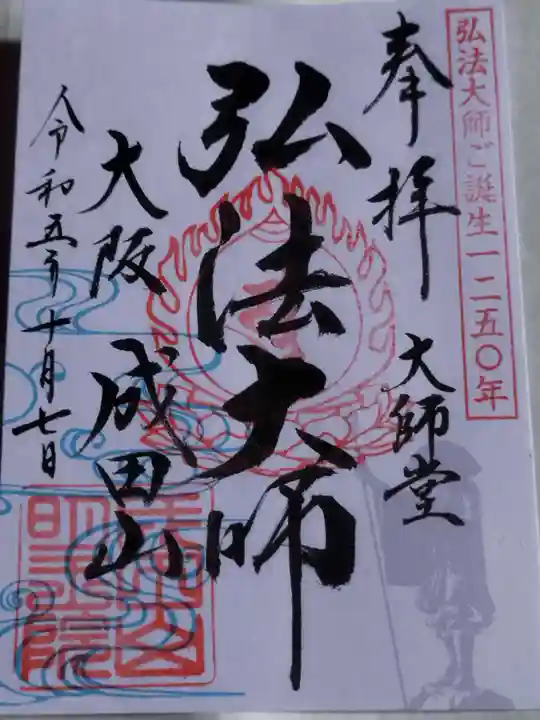 弘法大師ご誕生一二五〇年
奉拝 大師堂
弘法大師
大阪 成田山
令和五年十月七日